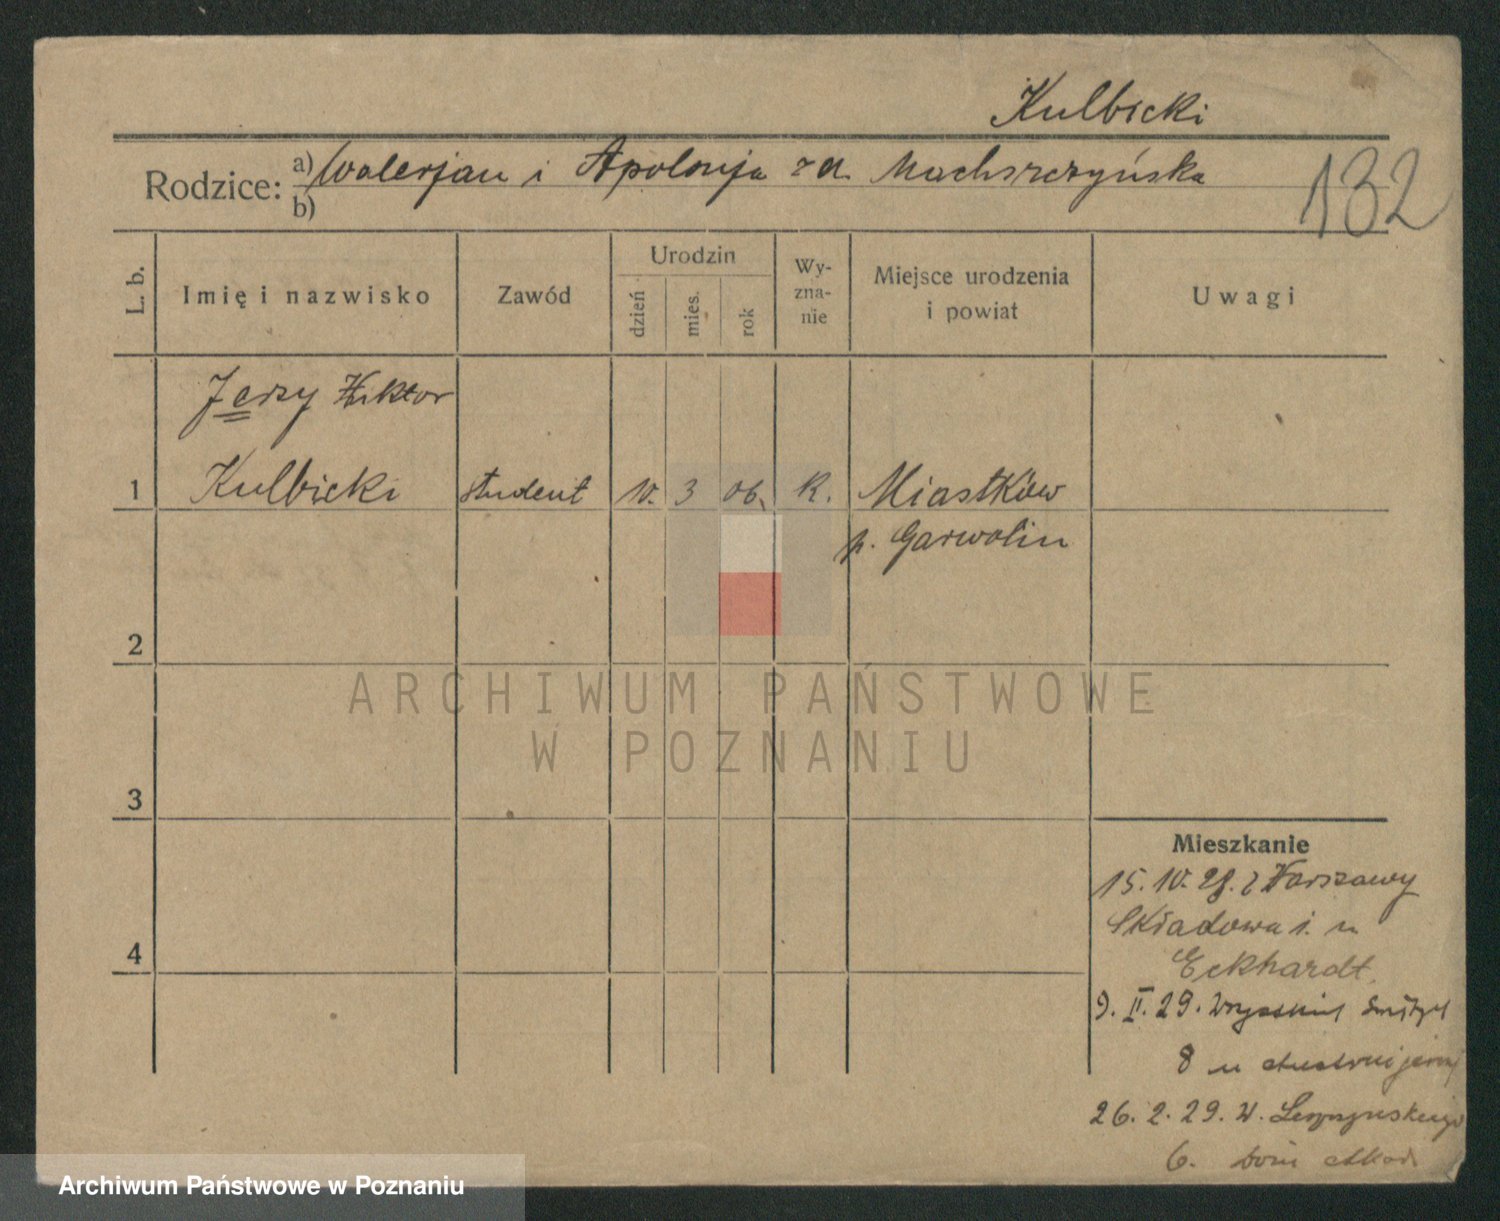 Kulbicki
Rodzice: a) Walerjan i Apolonja zd. Machszczyńska
b)
132
L. b.
Imię i nazwisko
Zawód
Urodzin
dzień
mies.
rok
Wy-
zna-
nie
Miejsce urodzenia
i powiat
Uwagi
Jerzy Wiktor
1 Kulbicki student 10. 3 06. R. Miastków
p. Garwolin
2
3
4
Mieszkanie
15. 10. 28. z Warszawy
Składowa
Eckhardt
9. II. 29.
8 u
26. 2. 29. W.
6. Dom Akad.
ARCHIWUM PAŃSTWOWE
W POZNANIU
Archiwum Państwowe w Poznaniu